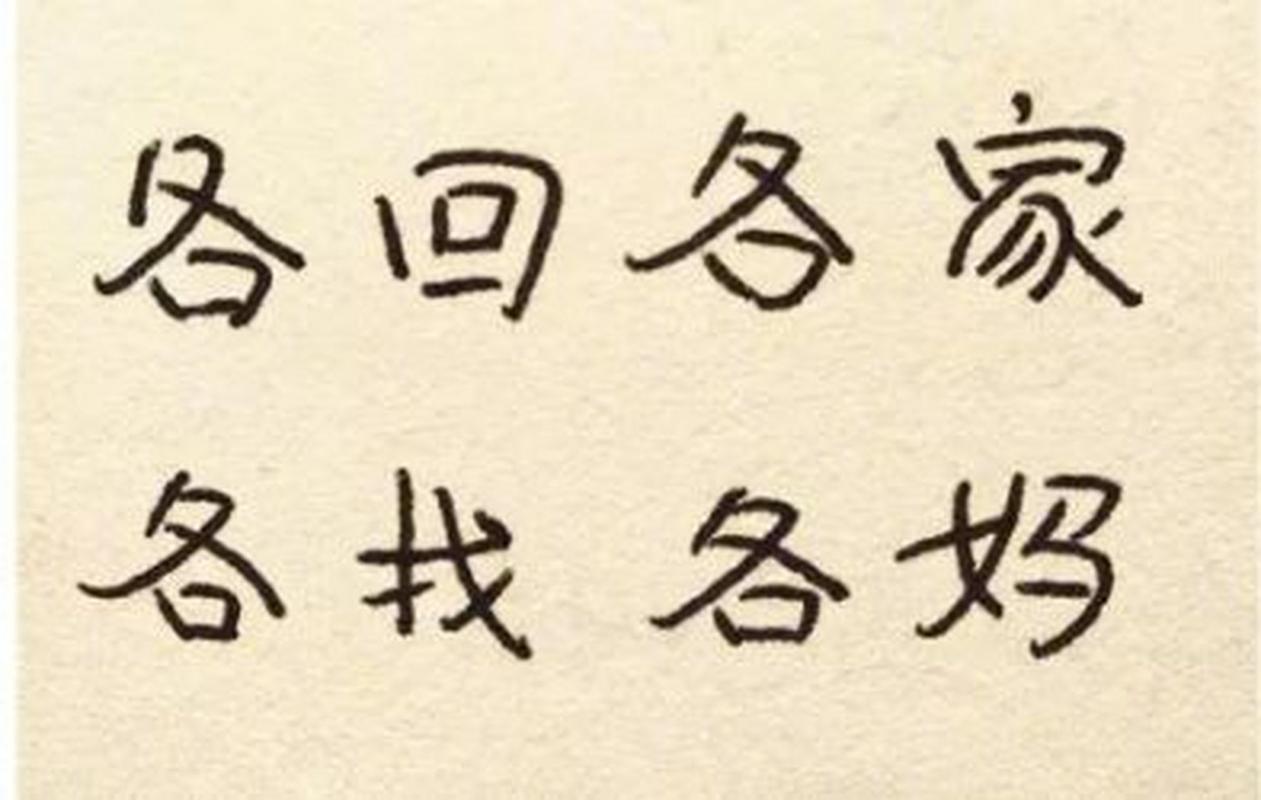 各回各家
各找各妈